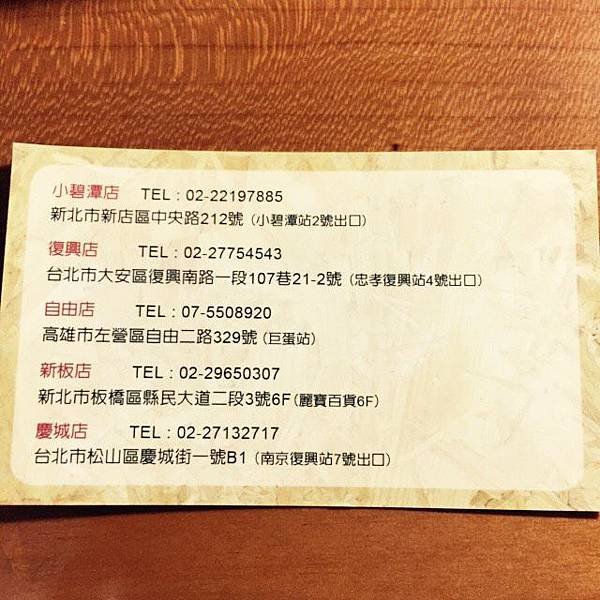 小碧潭店 TEL：02-22197885
新北市新店區中央路212號（小碧潭站2號出口）
復興店 TEL：02-27754543
台北市大安區復興南路一段107巷21-2號（忠孝復興站4號出口）
自由店 TEL：07-5508920
高雄市左營區自由二路329號（巨蛋站）
新板店 TEL：02-29650307
新北市板橋區縣民大道二段3號6F（麗寶百貨6F）
慶城店 TEL：02-27132717
台北市松山區慶城街一號B1（南京復興站7號出口）